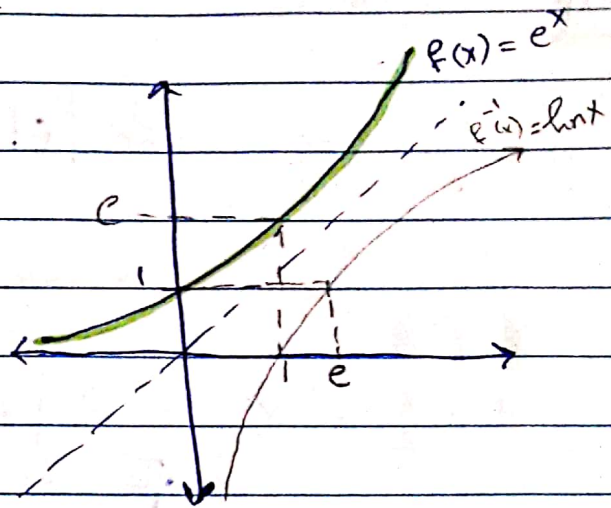 f(x) = eˣ
f⁻¹(x) = lnx
e
1
1
e